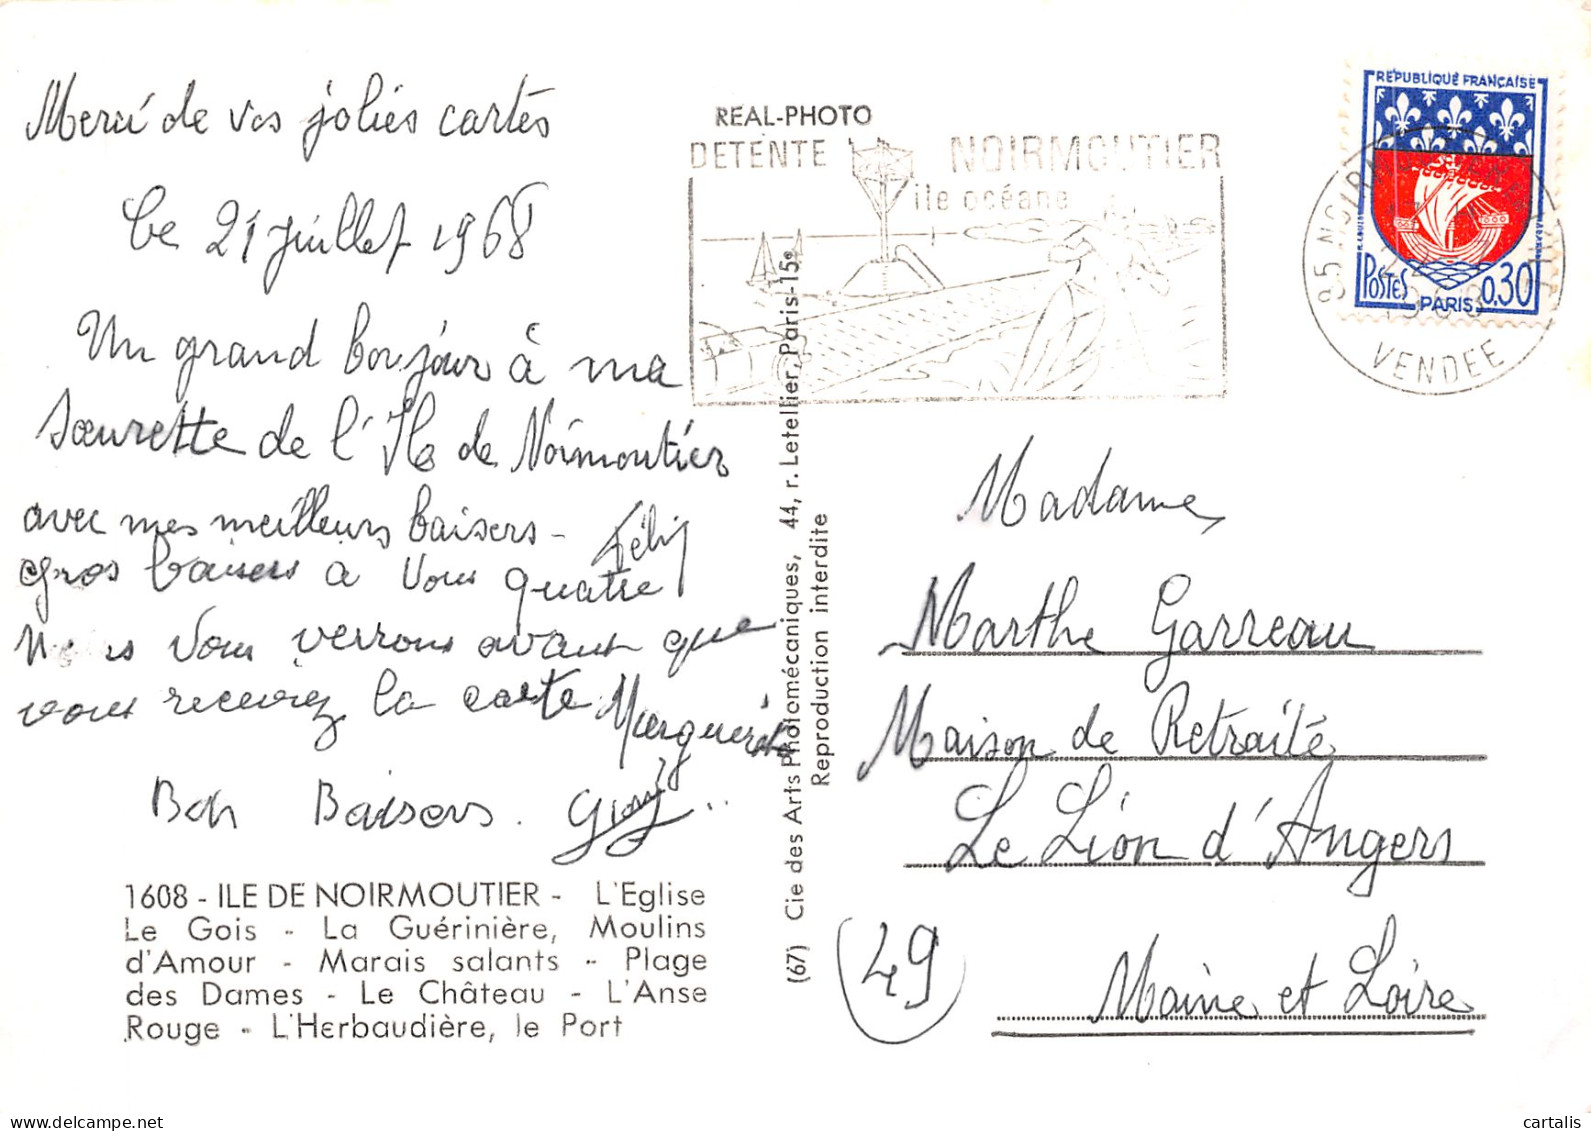 Merci de vos jolies cartes
Le 21 juillet 1968
Un grand bonjour à ma
sœurette de l'Ile de Noirmoutier
avec mes meilleurs baisers -
gros baisers a vous quatre
Nous vous verrons avant que
vous recevrez la carte Marguerite
Bon Baisers.
1608 - ILE DE NOIRMOUTIER - L'Eglise
Le Gois - La Guérinière, Moulins
d'Amour - Marais salants - Plage
des Dames - Le Château - L'Anse
Rouge - L'Herbaudière, le Port
REAL-PHOTO
DETENTE NOIRMOUTIER
île océane
(67) Cie des Arts Photomécaniques, 44, r. Letellier, Paris-15e
Reproduction interdite
REPUBLIQUE FRANÇAISE
POSTES 0,30
PARIS
85 NOIRMOUTIER
VENDEE
Madame
Marthe Garreau
Maison de Retraite
Le Lion d'Angers
(49)
Maine et Loire
cartalis
www.delcampe.net